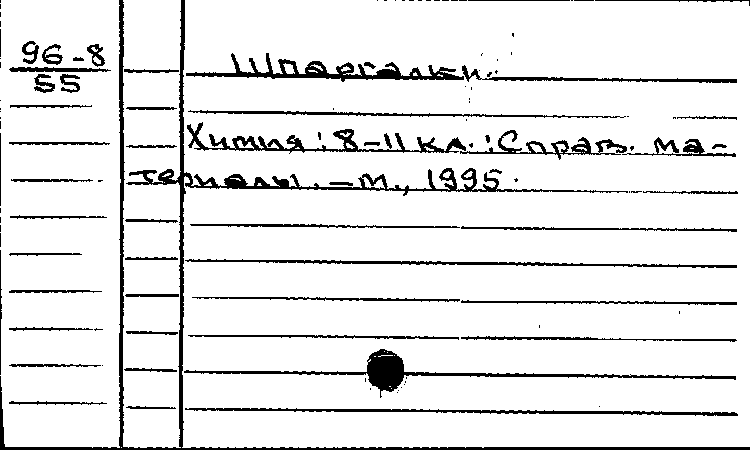 96-8
55
Шпаргалки.
Химия: 8-11 кл.: Справ. ма-
териалы. - М., 1995.